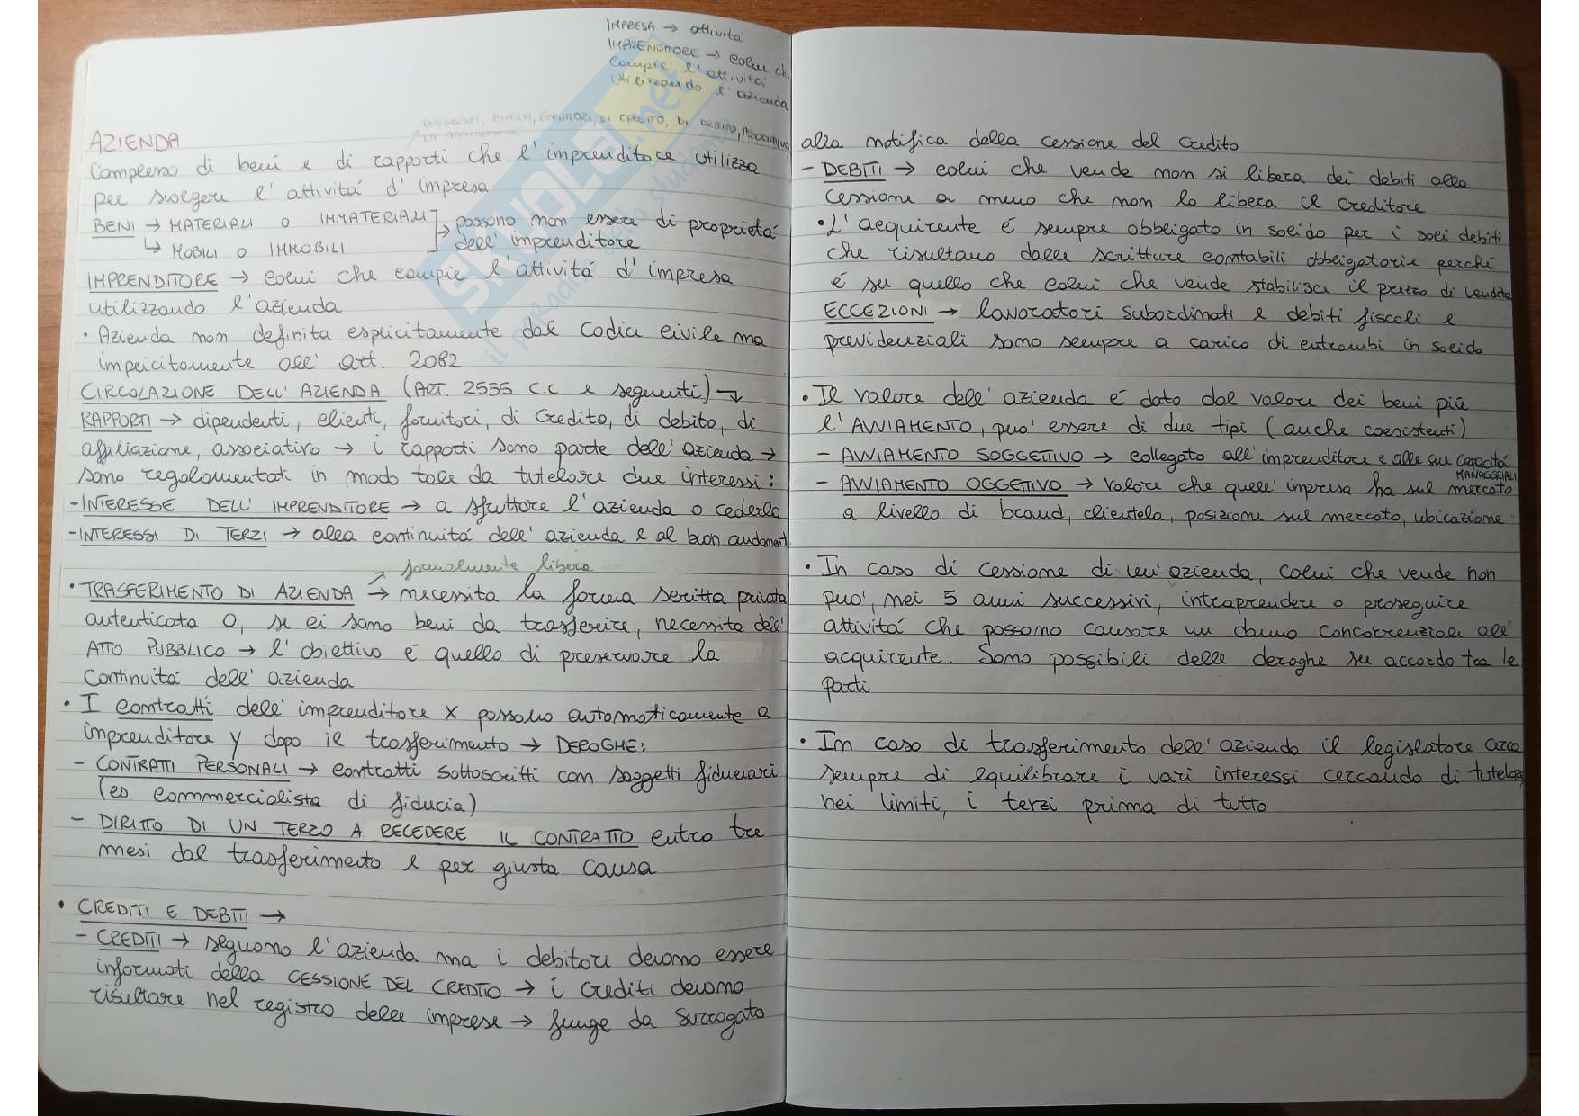 IMPRESA → attività
IMPRENDITORE → colui ch
compie l'attività
utilizzando l'azienda
DI CREDITO, DI DEBITO,
AZIENDA
Complesso di beni e di rapporti che l'imprenditore utilizza
per svolgere l'attività d'impresa
BENI → MATERIALI o IMMATERIALI → possono non essere di proprietà
↳ MOBILI o IMMOBILI dell'imprenditore
IMPRENDITORE → colui che compie l'attività d'impresa
utilizzando l'azienda
• Azienda non definita esplicitamente dal Codice civile ma
implicitamente all'art. 2082
CIRCOLAZIONE DELL'AZIENDA (ART. 2555 C.C e seguenti) ↴
RAPPORTI → dipendenti, clienti, fornitori, di credito, di debito, di
affiliazione, associativo → i rapporti sono parte dell'azienda →
sono regolamentati in modo tale da tutelare due interessi:
- INTERESSE DELL'IMPRENDITORE → a sfruttare l'azienda o cederla
- INTERESSI DI TERZI → alla continuità dell'azienda e al buon andament
formalmente libera
• TRASFERIMENTO DI AZIENDA → necessita la forma scritta privata
autenticata O, se ci sono beni da trasferire, necessita dell'
ATTO PUBBLICO → l'obiettivo è quello di preservare la
continuità dell'azienda
• I contratti dell'imprenditore x passano automaticamente a
imprenditore y dopo il trasferimento → DEROGHE:
- CONTRATTI PERSONALI → contratti sottoscritti con soggetti fiduciari
(es commercialista di fiducia)
- DIRITTO DI UN TERZO A RECEDERE IL CONTRATTO entro tre
mesi dal trasferimento e per giusta causa
• CREDITI E DEBITI →
- CREDITI → seguono l'azienda ma i debitori devono essere
informati della CESSIONE DEL CREDITO → i crediti devono
risultare nel registro delle imprese → funge da surrogato
alla notifica della cessione del credito
- DEBITI → colui che vende non si libera dei debiti alla
cessione a meno che non lo libera il creditore
• L'acquirente è sempre obbligato in solido per i soli debiti
che risultano dalle scritture contabili obbligatorie perché
è su quello che colui che vende stabilisce il prezzo di vendita
ECCEZIONI → lavoratori subordinati e debiti fiscali e
previdenziali sono sempre a carico di entrambi in solido
• Il valore dell'azienda è dato dal valore dei beni più
l'AVVIAMENTO, puo' essere di due tipi (anche coesistenti)
- AVVIAMENTO SOGGETTIVO → collegato all'imprenditore e alle sue capacità
MANAGERIALI
- AVVIAMENTO OGGETIVO → valore che quell'impresa ha sul mercato
a livello di brand, clientela, posizione sul mercato, ubicazione
• In caso di cessione di un'azienda, colui che vende non
puo', nei 5 anni successivi, intraprendere o proseguire
attività che possono causare un danno concorrenziale all'
acquirente. Sono possibili delle deroghe su accordo tra le
parti
• In caso di trasferimento dell'azienda il legislatore cerca
sempre di equilibrare i vari interessi cercando di tutelare
nei limiti, i terzi prima di tutto
SKUOLA.net